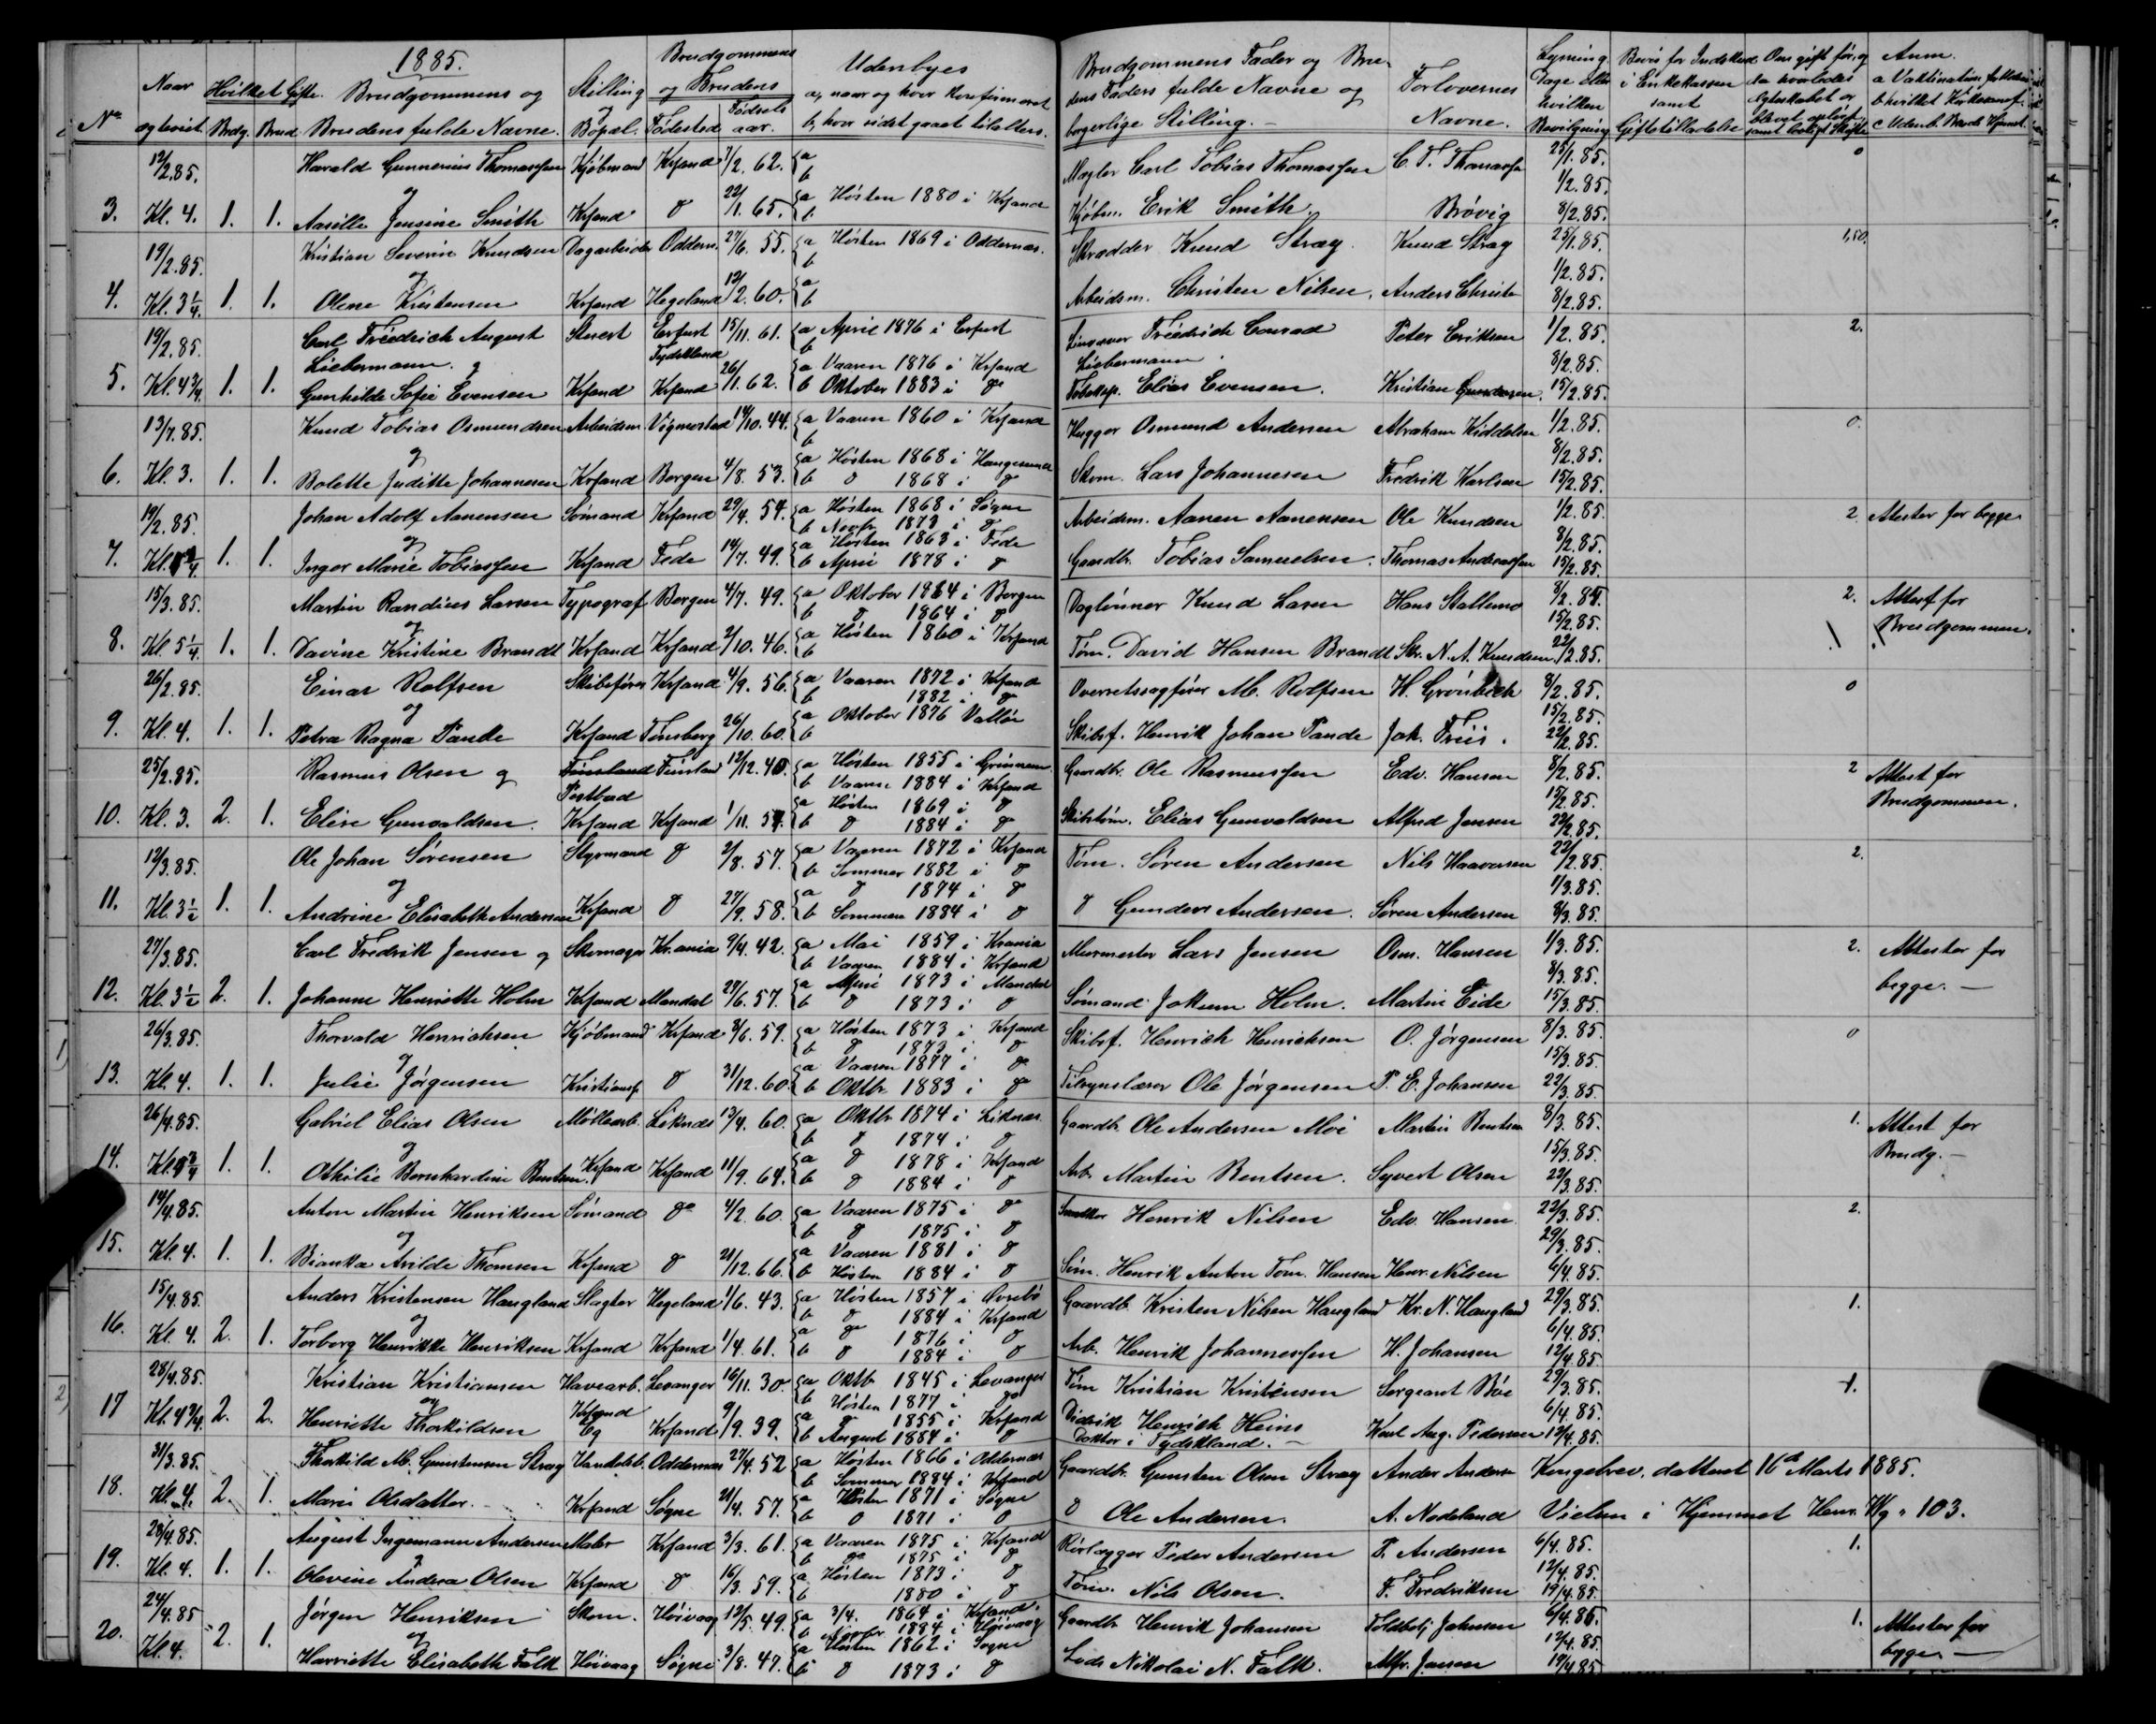 1885.
Naar Hvilket Gifte. Brudgommens og Stilling Brudgommens og Brudens Udenbyes
No og viet. Brdg. Brud. Brudens fulde Navne. og Bopæl. Fødested Fødselsaar. a, naar og hvor konfirmeret
b, hvor sidst gaaet tilalters.
Brudgommens Fader og Brudens Faders fulde Navne og borgerlige Stilling. Forlovernes Navne. Lysning Dage eller hvilken Bevilgning Bevis for Indskud i Enkekassen samt Giftetilladelse Anm.
12/2.85. Harald Gunnerius Thomassen Kjøbmand Krsand 1/2. 62. a b Mægler Carl Tobias Thomassen C. T. Thomassen 25/1.85. 0
og 1/2.85.
3. Kl. 4. 1. 1. Aasille Jensine Smith Krsand 22/1. 65. a Høsten 1880 i Krsand b Kjøbm. Erik Smith Brøvig 8/2.85.
19/2.85. Kristian Severin Knudsen Dagarbeider Oddern. 27/6. 55. a Høsten 1869 i Oddernæs. b Skrædder Knud Stray Knud Stray 25/1.85. 1,50.
og 1/2.85.
4. Kl. 3 1/4. 1. 1. Olene Kristensen Krsand Hegeland 12/2. 60. a b Arbeidsm. Christen Nilsen. Anders Christen 8/2.85.
19/2.85. Carl Friedrich August Liebermann og Stuert Erfurt Tydskland 15/11. 61. a April 1876 i Erfurt b Friedrich Conrad Liebermann Peter Eriksen 1/2.85. 2.
8/2.85.
5. Kl. 4 3/4. 1. 1. Gunhilde Sofie Evensen Krsand Krsand 26/11. 62. a Vaaren 1876 i Krsand b Oktober 1883 i do Elias Evensen. Kristian Gundersen. 15/2.85.
13/7.85. Knud Tobias Osmundsen Arbeidsm. Vigmostad 14/10. 44. a Vaaren 1860 i Krsand b Hugger Osmund Andersen Abraham Kiddelsen 1/2.85. 0.
og 8/2.85.
6. Kl. 3. 1. 1. Bolette Juditte Johannesen Krsand Bergen 4/8. 53. a Høsten 1868 i Haugesund b 1868 i Skom. Lars Johannesen Fredrik Karlsen 15/2.85.
19/2.85. Johan Adolf Aanensen Sømand Krsand 29/4. 54. a Høsten 1868 i Søgne b Novbr 1873 i Arbeidsm. Aanen Aanensen Ole Knudsen 1/2.85. 2 Attester for begge
og 8/2.85.
7. 1. 1. Inger Marie Tobiassen Krsand Fede 14/7. 49. a Høsten 1863 i Fede b April 1878 i Gaardbr. Tobias Samuelsen. Thomas Andreassen 15/2.85.
15/3.85. Martin Randius Larsen Typograf Bergen 4/7. 49. a Oktober 1864 i Bergen b 1864 i Daglønner Knud Larsen Hans Stallemo 8/2.85. 2. Attest for Brudgommen.
og 15/2.85.
8. Kl. 5 1/4. 1. 1. Davine Kristine Brandt Krsand Krsand 2/10. 46. a Høsten 1860 i Krsand b Tøm. David Hansen Brandt Skr. N. A. Knudsen 22/2.85.
26/2.85. Einar Rolfsen Skibsfører Krsand 4/9. 56. a Vaaren 1872 i Krsand b 1882 i Overretssagfører M. Rolfsen H. Grønbech 8/2.85. 0
og 15/2.85.
9. Kl. 4. 1. 1. Petra Ragna Pande Krsand Tønsberg 26/10. 60. a Oktober 1876 Valløe b Skibsf. Henrik Johan Pande Joh. Friis. 22/2.85.
25/2.85. Rasmus Olsen og Finsland Postbud Finsland 12/12. 40. a Høsten 1855 i b Vaaren 1884 i Krsand Gaardbr. Ole Rasmussen Edv. Hansen 8/2.85. 2 Attest for Brudgommen.
15/2.85.
10. Kl. 3. 2. 1. Elise Gunvaldsen. Krsand Krsand 1/11. 54. a Høsten 1869 i b 1884 i Skibstøm. Elias Gunvaldsen Alfred Jensen 22/2.85.
12/3.85. Ole Johan Sørensen Styrmand 2/8. 57. a Vaaren 1872 i Krsand b Sommer 1882 i Tøm. Søren Andersen Nils Haaversen 22/2.85. 2.
og 1/3.85.
11. Kl. 3 1/2 1. 1. Andrine Elisabeth Andersen Krsand 27/9. 58. a 1874 i b Sommeren 1884 i Gunder Andersen. Søren Andersen 8/3.85.
27/3.85. Carl Fredrik Jensen og Skomager Kr.ania 9/4. 42. a Mai 1859 i Krania b Vaaren 1884 i Krsand Murmester Lars Jensen Osm. Hansen 1/3.85. 2. Attester for begge. —
8/3.85.
12. Kl. 3 1/2 2. 1. Johanne Henriette Holm Krsand Mandal 27/6. 57. a April 1873 i Mandal b 1873 i Sømand Jokum Holm. Martin Eide 15/3.85.
26/3.85. Thorvald Henrichsen Kjøbmand Krsand 3/6. 59. a Høsten 1873 i Krsand b 1873 i Skibsf. Henrich Henrichsen O. Jørgensen 8/3.85 0
og 15/3.85.
13. Kl. 4. 1. 1. Julie Jørgensen Kristiansf. 31/12. 60. a Vaaren 1877 i b Oktbr. 1883 i Tilsynslærer Ole Jørgensen P. E. Johansen 22/3.85.
26/4.85. Gabriel Elias Olsen Møllearb. Liknæs 13/4. 60. a Oktbr 1874 i Liknæs b 1874 i Gaardb. Ole Andersen Moi Martin Bentsen 8/3.85. 1. Attest for Brudg. —
og 15/3.85.
14. 1. 1. Othilie Bernhardine Bentsen. Krsand Krsand 11/9. 64. a 1878 i Krsand b 1884 i Arb. Martin Bentsen. Syvert Olsen 22/3.85.
14/4.85. Anton Martin Henriksen Sømand do 4/2. 60. a Vaaren 1875 i b 1875 i Henrik Nilsen Edv. Hansen 22/3.85. 2.
og 29/3.85.
15. Kl. 4. 1. 1. Bianka Arilde Thomsen Krsand 21/12. 66. a Vaaren 1881 i b Høsten 1884 i Søm. Henrik Anton Tom. Hansen Henr. Nilsen 6/4.85.
15/4.85. Anders Kristensen Haugland Slagter Hegeland 1/6. 43. a Høsten 1857 i Øvrebø b 1884 i Krsand Gaardb. Kristen Nilsen Haugland Kr. N. Haugland 29/3.85. 1.
og 6/4.85.
16. Kl. 4. 2. 1. Torborg Henrikke Henriksen Krsand Krsand 1/4. 61. a 1876 i b 1884 i Arb. Henrik Johannessen H. Johansen 12/4.85.
28/4.85. Kristian Kristiansen Havearb. Levanger 16/11. 30. a Oktbr 1845 i Levanger b Høsten 1877 i Tøm Kristian Kristensen Sergeant Bøe 29/3.85. 1.
og 6/4.85.
17 Kl. 4 3/4. 2. 2. Henriette Thorkildsen Krsand Eg Krsand 9/9. 39. a 1855 i Krsand b August 1884 i Didrik Henrich Heins Doktor i Tydskland. — Karl Aug. Pedersen 12/4.85.
31/3.85. Thorkild M. Gunstensen Stray Handelsb. Oddernæs 27/4. 52 a Høsten 1866 i Oddernæs b Sommer 1884 i Krsand Gaardbr. Gunsten Olsen Stray Ander Andersen Kongebrev. datteret 16de Marts 1885.
18. Kl. 4. 2. 1. Marie Olsdatter. Krsand Søgne 21/4. 57. a Høsten 1871 i Søgne b 1871 i Ole Andersen. A. Nodeland Vielsen i Hjemmet Henr. Wg. 103.
28/4.85. August Ingemann Andersen Maler Krsand 3/3. 61. a Vaaren 1875 i Krsand b 1875 i Rørlægger Peder Andersen P. Andersen 6/4.85. 1.
og 12/4.85.
19. Kl. 4. 1. 1. Olevine Andrea Olsen Krsand 16/3. 59. a Høsten 1873 i b 1880 i Tøm. Nils Olsen. F. Fredriksen 19/4.85.
24/4.85 Jørgen Henriksen Skom. Høivaag 12/5. 49. a 3/4. 1864 i Krsand b Novbr 1884 i Høivaag Gaardb. Henrik Johansen Toldbetj Johnsen 6/4.85. 1. Attester for begge. —
og 12/4.85.
20. Kl. 4. 2. 1. Harriette Elisabeth Falk Høivaag Søgne 3/8. 47. a Høsten 1862 i Søgne b 1873 i Lods Nikolai N. Falk. Alfr. Jensen 19/4.85